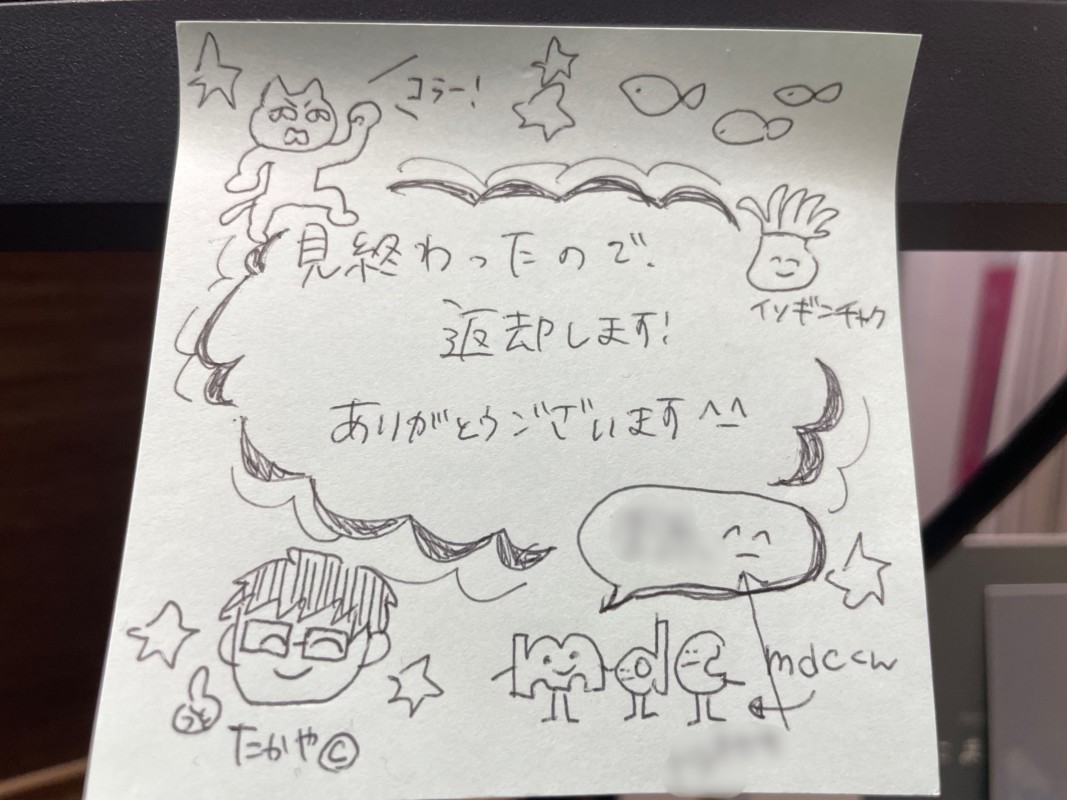 コラー!
見終わったので、
返却します!
ありがとうございます^_^
イソギンチャク
^_^
mdc
mdcくん
たかや©